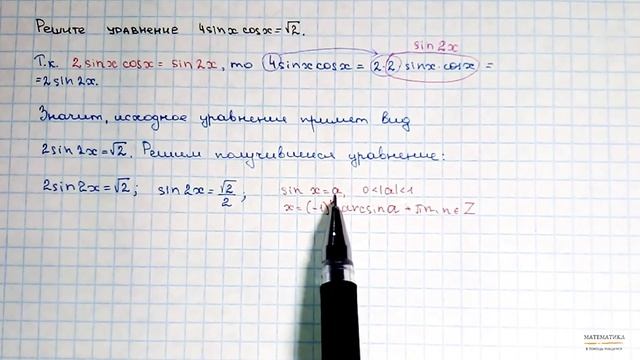 Решите уравнение 4sinx cosx=√2.
sin2x
Т.к. 2sinxcosx = sin2x, то 4sinxcosx = 2·2·sinx·cosx =
=2sin2x.
Значит, исходное уравнение примет вид
2sin2x=√2. Решим получившееся уравнение:
2sin2x=√2; sin2x=√2/2; sin x=a, 0<|a|<1
x=(-1) arcsina + πn, n∈Z
МАТЕМАТИКА
В ПОМОЩЬ УЧАЩИМСЯ